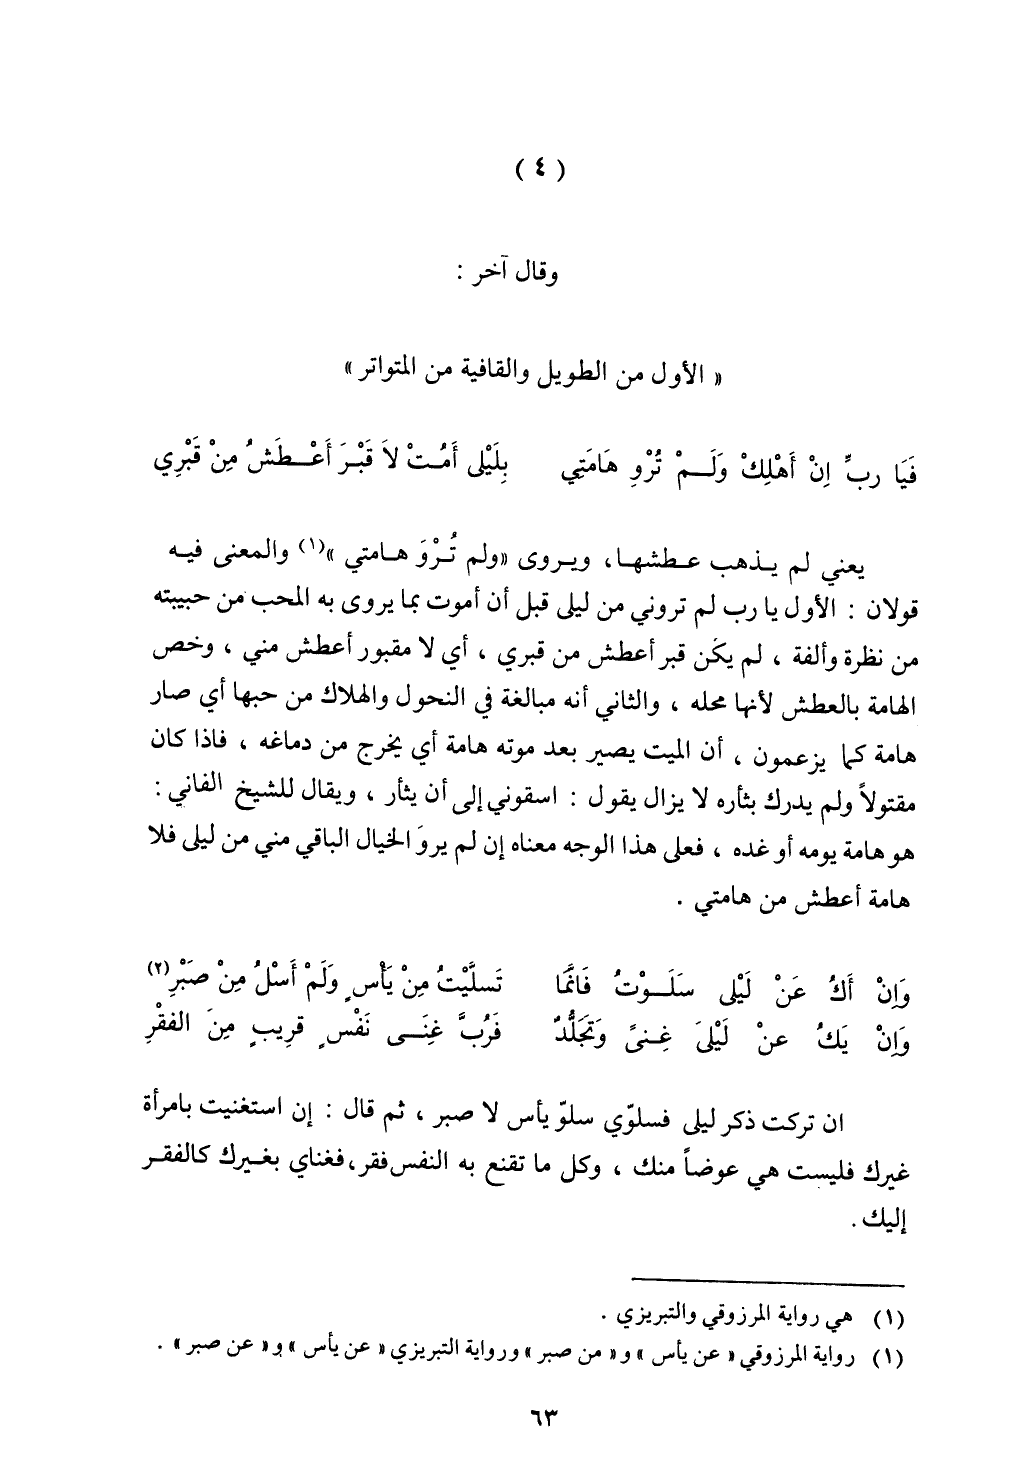 ( ٤ )
وقال آخر :
« الأول من الطويل والقافية من المتواتر »
فَيَا ربِّ اِنْ أَهْلِكْ وَلَـمْ تُرْوِ هَامَتِي بِلَيْلى أَمُـتْ لاَ قَبْـرَ أَعْـطَشُ مِنْ قَبْرِي
يعني لم يـذهب عـطشهـا، ويـروى «ولم تُـرْوَ هـامتي »(١) والمعنى فيـه
قولان : الأول يا رب لم تروني من ليلى قبل أن أموت بما يروى به المحب من حبيبته
من نظرة وألفة ، لم يكن قبر أعطش من قبري ، أي لا مقبور أعطش مني ، وخص
الهامة بالعطش لأنها محله ، والثاني أنه مبالغة في النحول والهلاك من حبها أي صار
هامة كما يزعمون ، أن الميت يصير بعد موته هامة أي يخرج من دماغه ، فاذا كان
مقتولاً ولم يدرك بثاره لا يزال يقول : اسقوني إلى أن يثار ، ويقال للشيخ الفاني :
هو هامة يومه أو غده ، فعلى هذا الوجه معناه إن لم يروَ الخيال الباقي مني من ليلى فلا
هامة أعطش من هامتي .
وَاِنْ أَكُ عَنْ لَيْلى سَلَـوْتُ فَانَّمَا تَسلَّيْتُ مِنْ يَأْسٍ وَلَمْ أَسْلُ مِنْ صَبْرِ(٢)
وَاِنْ يَكُ عنْ لَيْلىَ غِـنىً وَتَجَلُّدٌ فَرُبَّ غِنَـى نَفْسٍ قرِيبٍ مِنَ الفقْرِ
ان تركت ذكر ليلى فسلوّي سلوّ يأس لا صبر ، ثم قال : إن استغنيت بامرأة
غيرك فليست هي عوضاً منك ، وكل ما تقنع به النفس فقر، فغناي بغيـرك كالفقـر
إليك .
(١) هي رواية المرزوقي والتبريزي .
(١) رواية المرزوقي « عن يأس » و « من صبر » ورواية التبريزي « عن يأس » و « عن صبر » .
٦٣